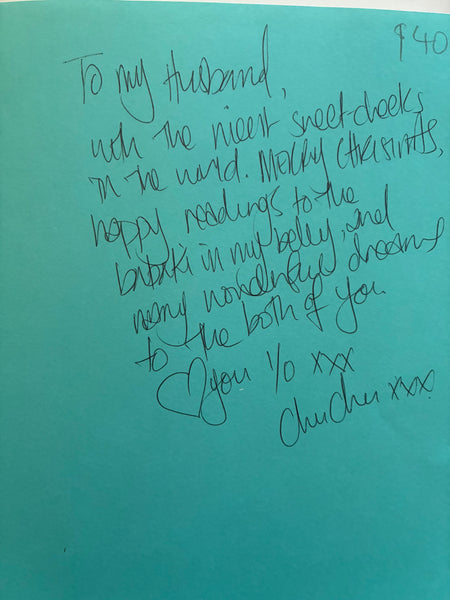 $40
To my Husband,
with the nicest sweet-cheeks
in the world. Merry Christmas,
happy readings to the
in my belly, and
many wonderful dreams
to the both of you
♡ you 1/0 xxx
chuchu xxx